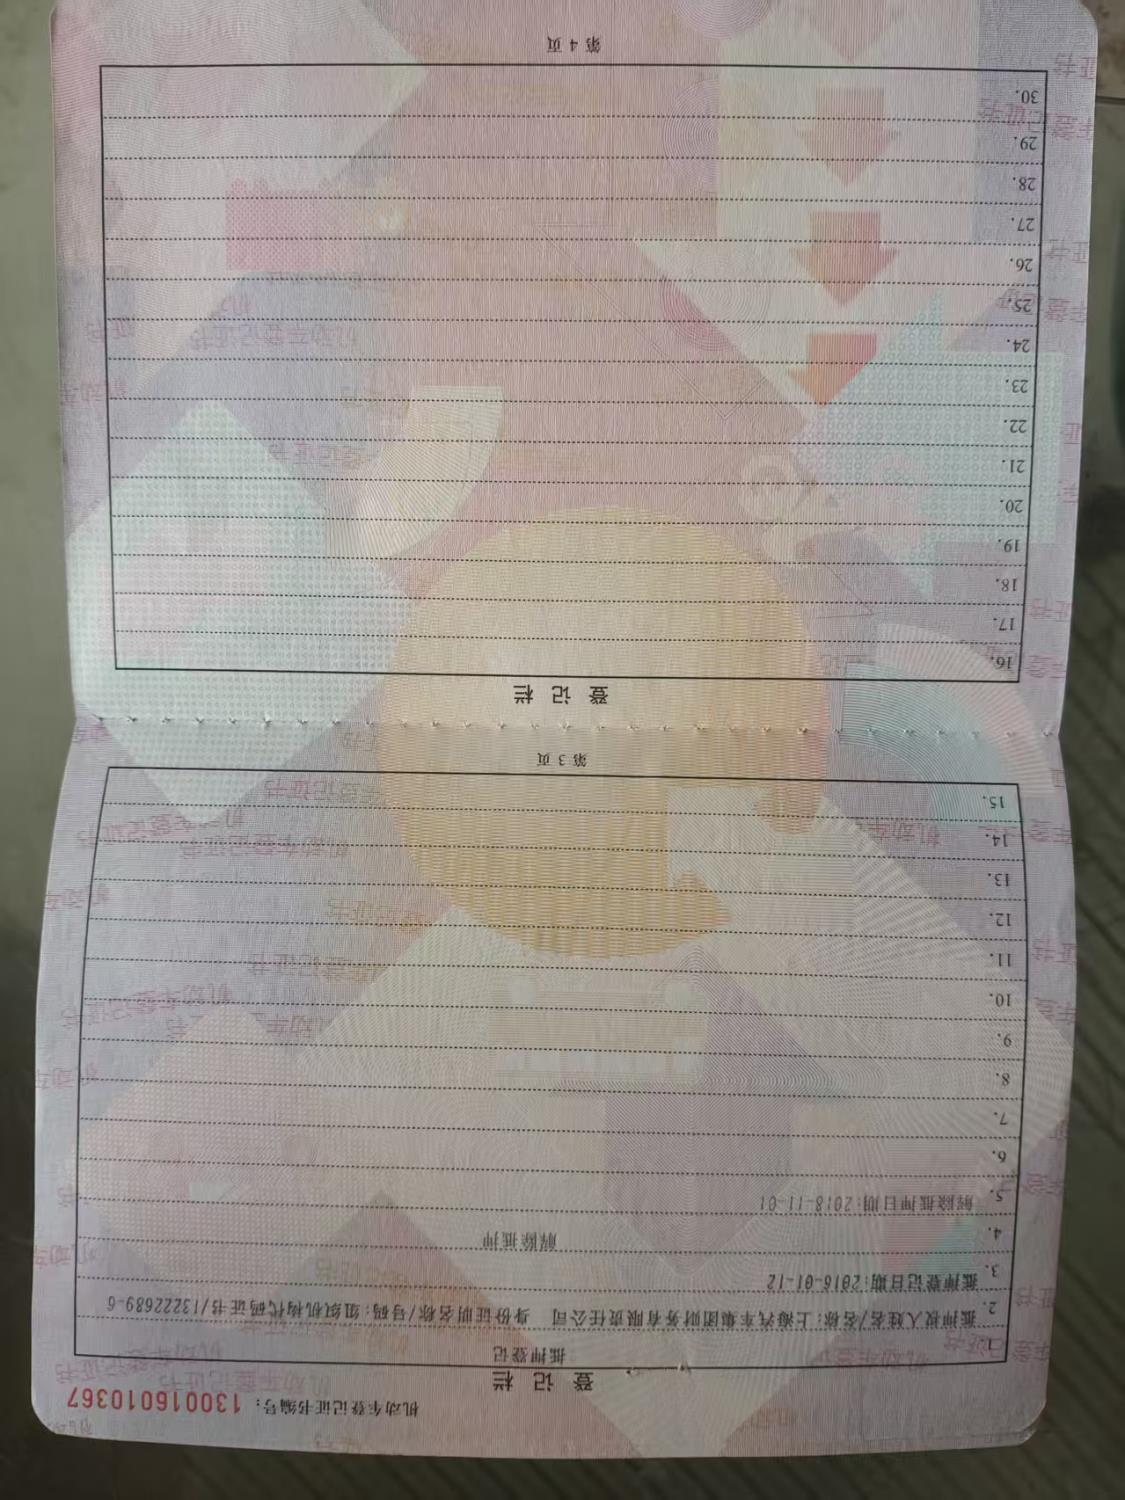 机动车登记证书编号：130016010367
登 记 栏
1.
抵押登记
2. 抵押权人姓名/名称：上海汽车集团财务有限责任公司 身份证明名称/号码：组织机构代码证书/13222689-6
3. 抵押登记日期：2016-01-12
4. 解除抵押
5. 解除抵押日期：2018-11-01
6.
7.
8.
9.
10.
11.
12.
13.
14.
15.
第 3 页
登 记 栏
16.
17.
18.
19.
20.
21.
22.
23.
24.
25.
26.
27.
28.
29.
30.
第 4 页